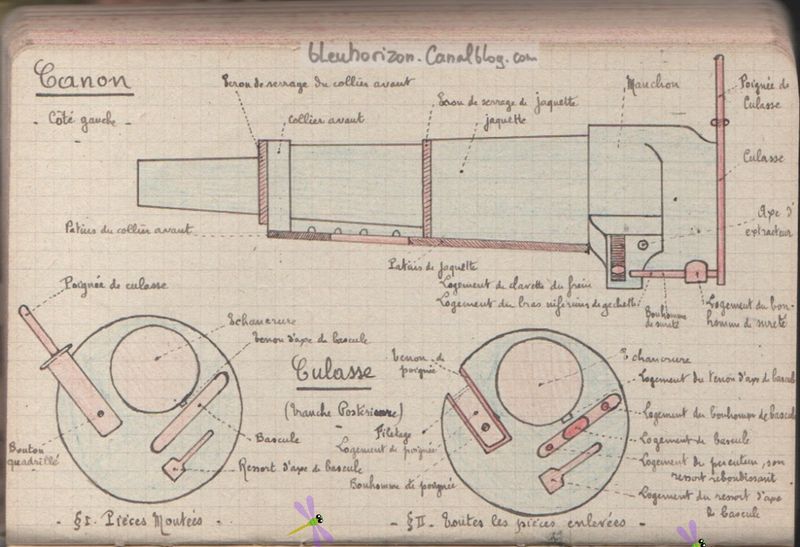 bleuhorizon.Canalblog.com
Canon
- Côté gauche -
Ecrou de serrage du collier avant
collier avant
Ecrou de serrage de jaquette
jaquette
Manchon
Poignée de
Culasse
Culasse
Axe d'
extracteur
Patins du collier avant
Patins de jaquette
Logement de clavette du frein
Logement du bras inférieur de gachette
Bonhomme
de sureté
Logement du bon-
homme de sureté
Poignée de culasse
Echancrure
Tenon d'axe de bascule
Bascule
Ressort d'axe de bascule
Bouton
quadrillé
- § I. Pièces Montées -
Culasse
(Tranche Postérieure)
Tenon de
poignée
Filetage
Logement de poignée
Bonhomme de poignée
Echancrure
Logement du tenon d'axe de bascule
Logement du bonhomme de bascule
Logement de bascule
Logement du percuteur, son
ressort rebondissant
Logement du ressort d'axe
de bascule
- § II. Toutes les pièces enlevées -